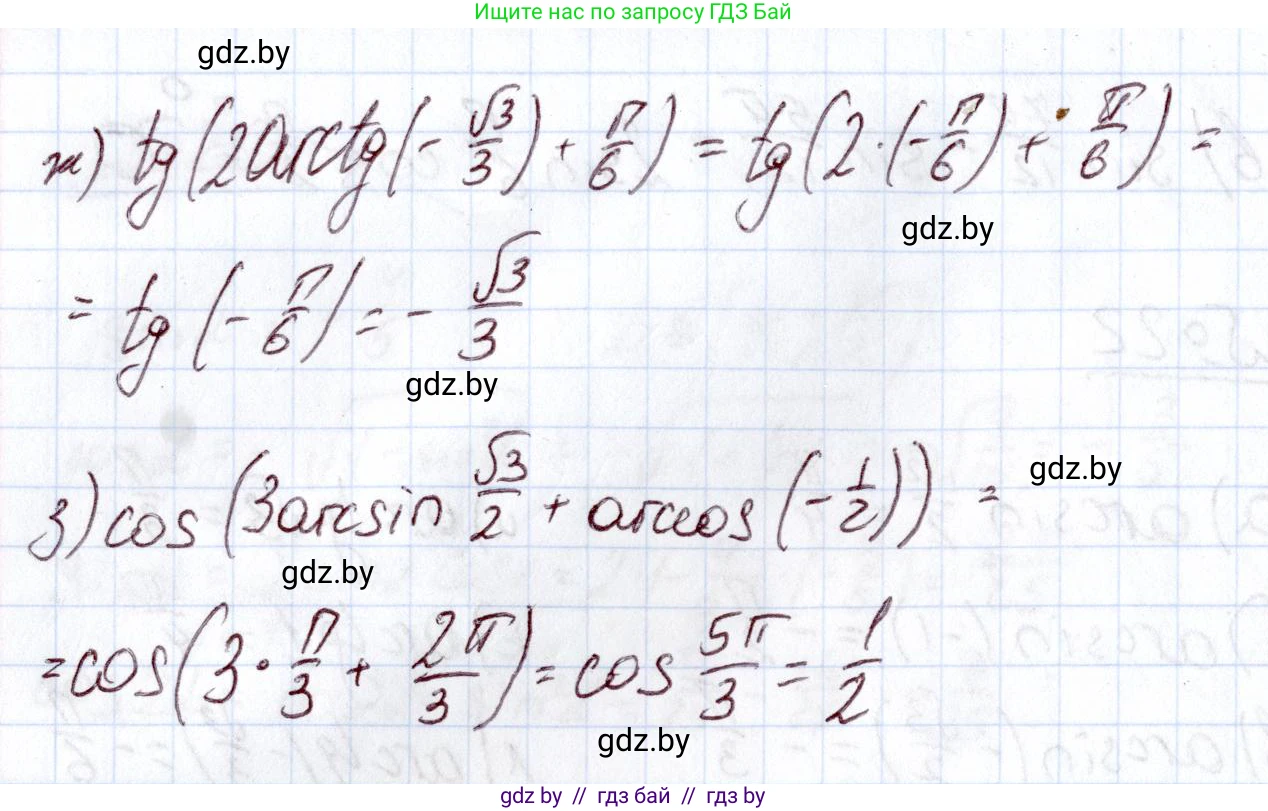 Ищите нас по запросу ГДЗ Бай
gdz.by
ж) tg(2arctg(-√3/3) + π/6) = tg(2·(-π/6) + π/6) =
gdz.by
= tg(-π/6) = -√3/3
gdz.by
з) cos(3arcsin √3/2 + arccos(-1/2)) =
gdz.by
gdz.by
=cos(3·π/3 + 2π/3) = cos 5π/3 = 1/2
gdz.by
gdz.by // гдз бай // гдз by